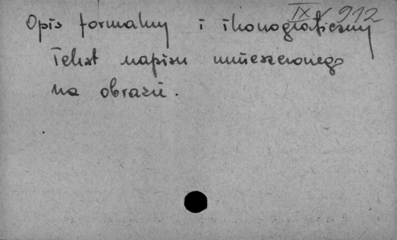 IX/912
Opis formalny i ikonograficzny
Tekst napisu umieszczonego
na obrazie.